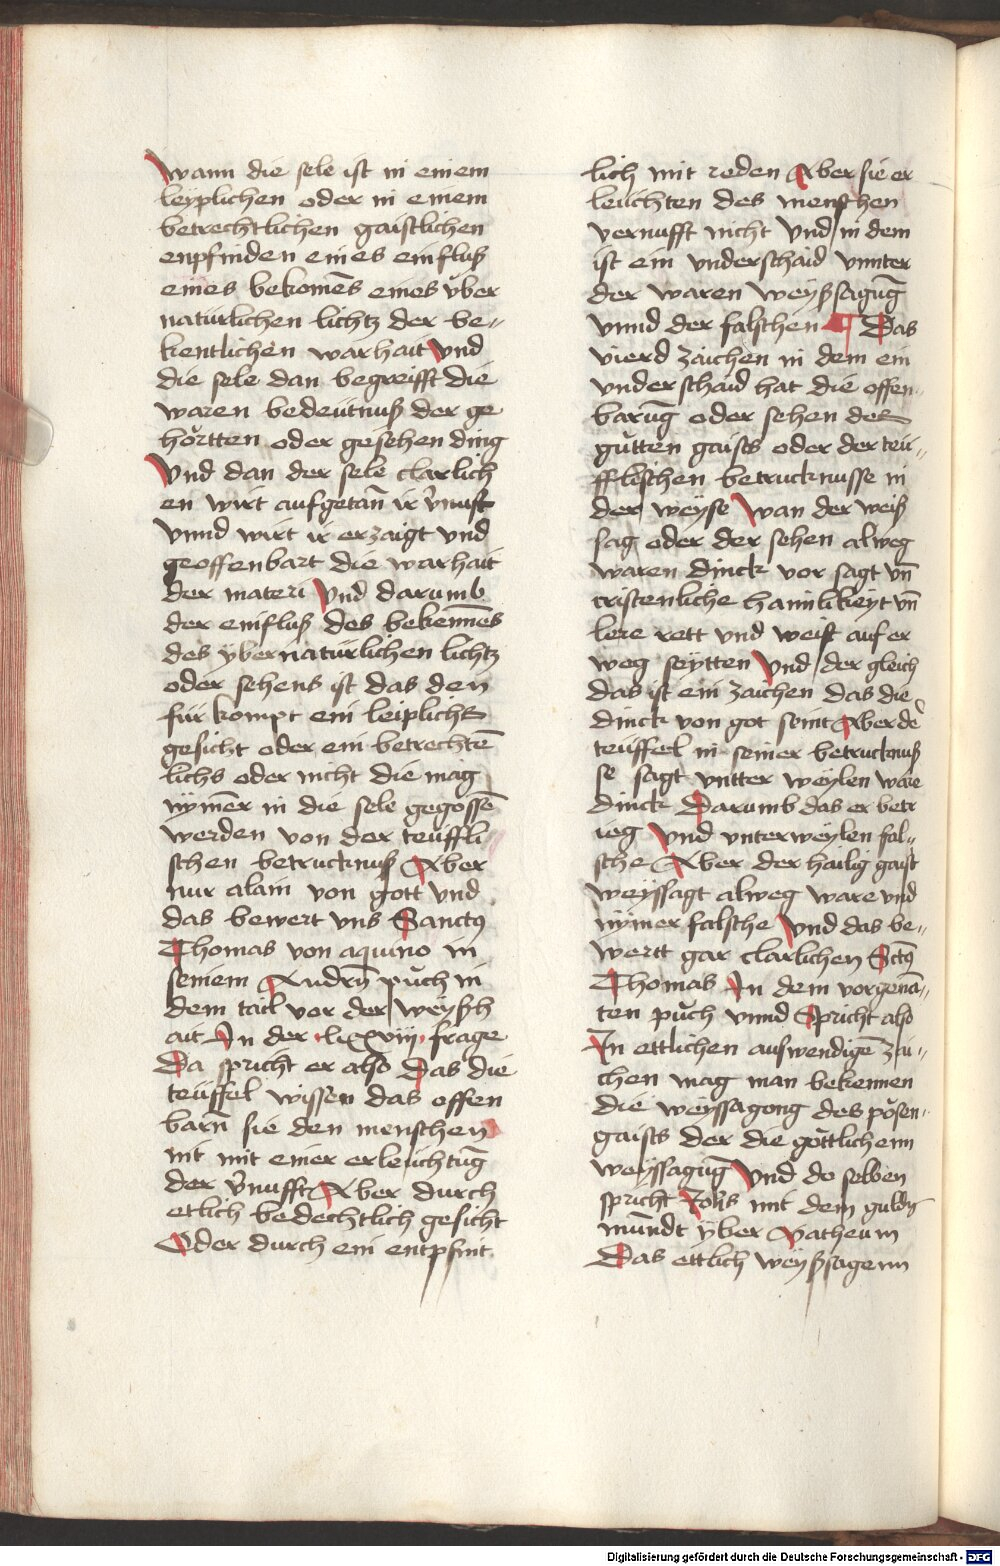 wann die sele ist in einem
leyplichen oder in einem
betrechtlichen gaistlichen
enpfinden eines einfluß
eines bekomēs eines vber
naturlichen lichtz der be„
kentlichen warhait Vnd
die sele dan begreifft die
waren bedeütnuß der ge
hörtten oder gesehen ding
Vnd dan der sele clarlich
en wirt aufgetan̄ ir v̄nuft
vnnd wirt ir erzaigt vnd
geoffenbart die warhait
der materi Vnd darumb
der einfluß des bekennēs
des ybernatürlichen lichtz
oder sehens ist das den
fürkompt ein leiplichs
gesicht oder ein betrechtē
lichs oder nicht die mag
nymēr in die sele gegossē
werden von der teüffli
schen betrucknuß Aber
nur alain von gott vnd
das bewert vns Sanctꝰ
Thomas von aquino in
seinem Andrn̄ püch in
dem tail vor der weyßh
ait In der ·lxxviij· frage
Da spricht er also Das die
teüffel wissen das offen
barn̄ sie den menschen
nit mit einer erleichtūg
der v̄nufft Aber durch
etlich bedechtlich gesicht
Oder durch ein entpfint
lich mit reden Aber sie er
leüchten des menschen
vernufft nicht Vnd in dem
ist ein vnderschaid vnnter
der waren weyßsagūg
vnnd der falschen ¶ Das
vierd zaichen in dem ein
vnderschaid hat die offen
barūg oder sehen des
gütten gaists oder der teü„
fflischen betrucknusse in
der weyse Wan der weiß
sag oder der sehen alweg
waren dinck vor sagt vn̄
cristenliche hainlikeyt vn̄
lere rett vnd weist auf er
weg seytten Vnd der gleich
das ist ein zaichen das die
dinck von got seint Aber de͛
teüffel in seiner betrucknuß
se sagt vntter weylen ware
dinck Darumb das er betr
ieg Vnd vnterweylen fal„
sche Aber der hailig gaist
weyssagt alweg ware vnd
nymer falsche Vnd das be„
wertt gar clarlichen Sctꝰ
Thomas In dem vorgenā„
ten püch vnnd Spricht also
In ettlichen auswendigē zai„
chen mag man bekennen
die weyssagong des pösen
gaists der die göttlichenn
weyssagūg Vnd do selben
spricht Johs mit dem guldn̄
mundt yber Matheum
Das ettlich weyßsagenn